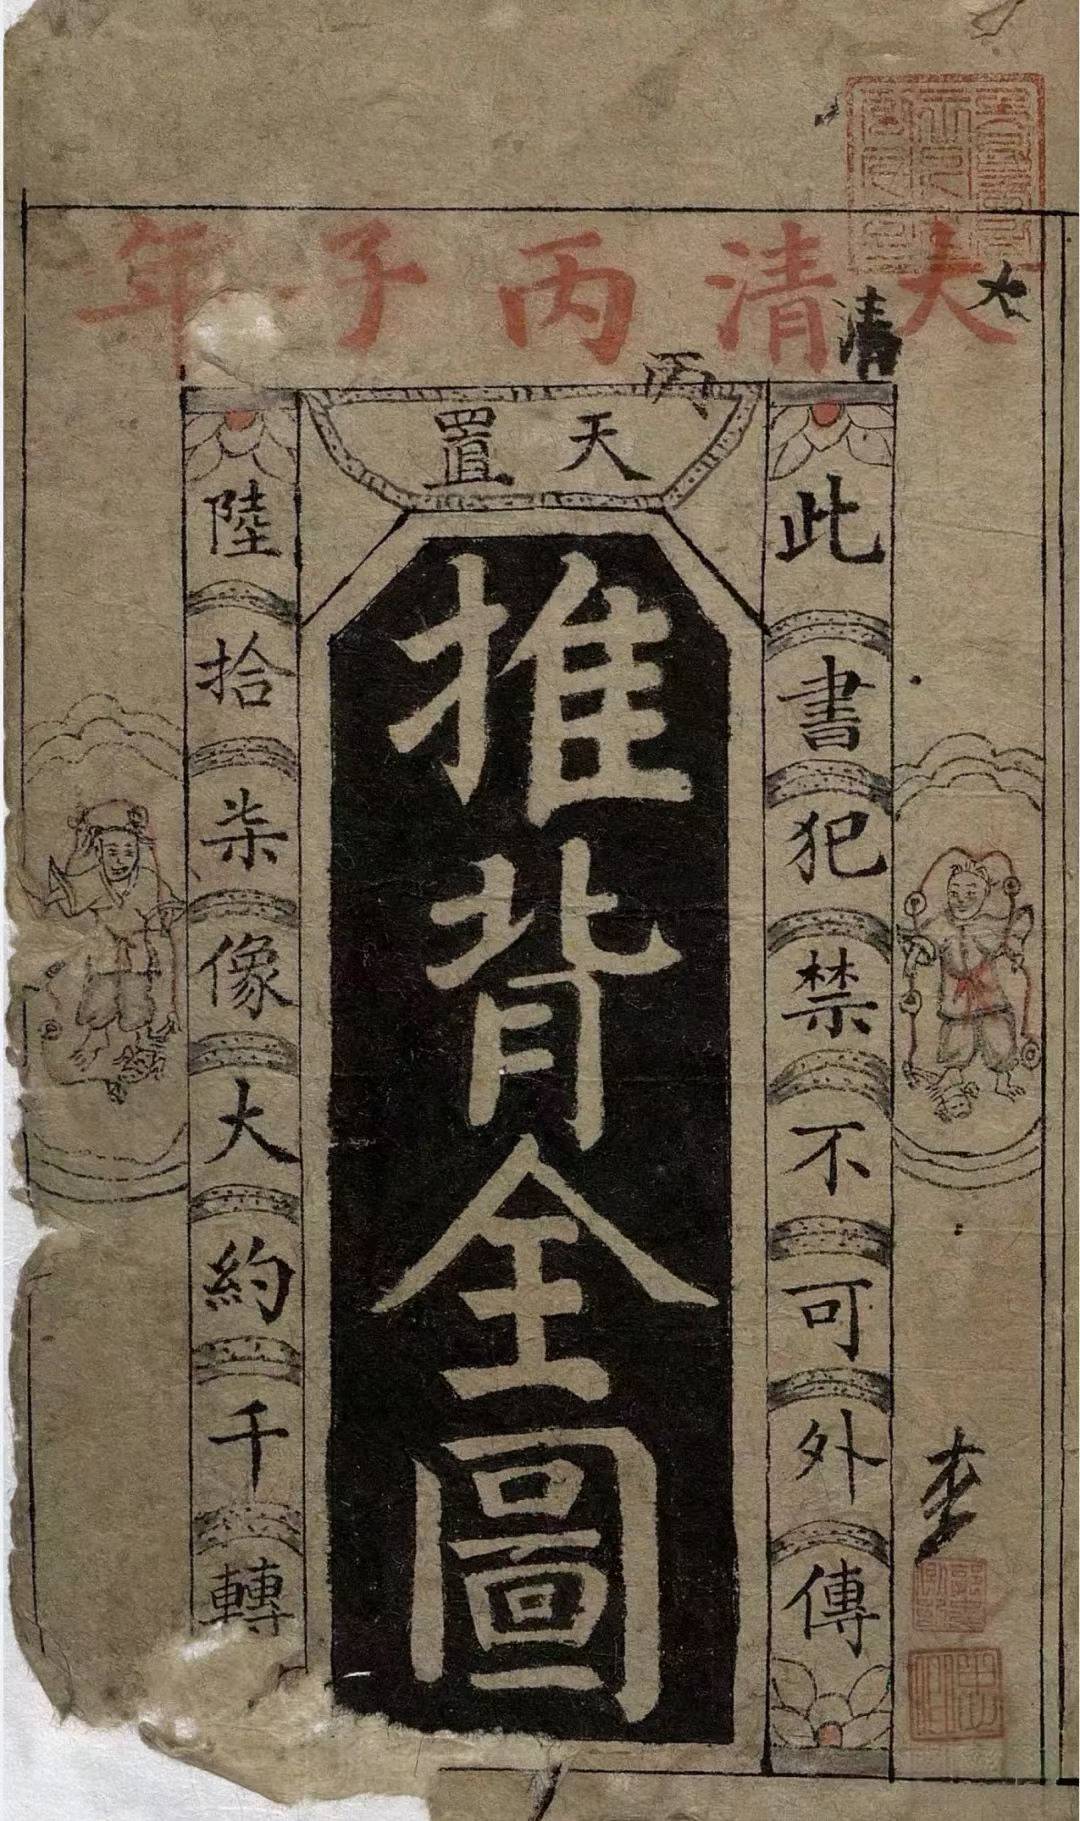 大清丙子年
大清丙
天置
此書犯禁不可外傳
推背全圖
陸拾柒像大約千轉